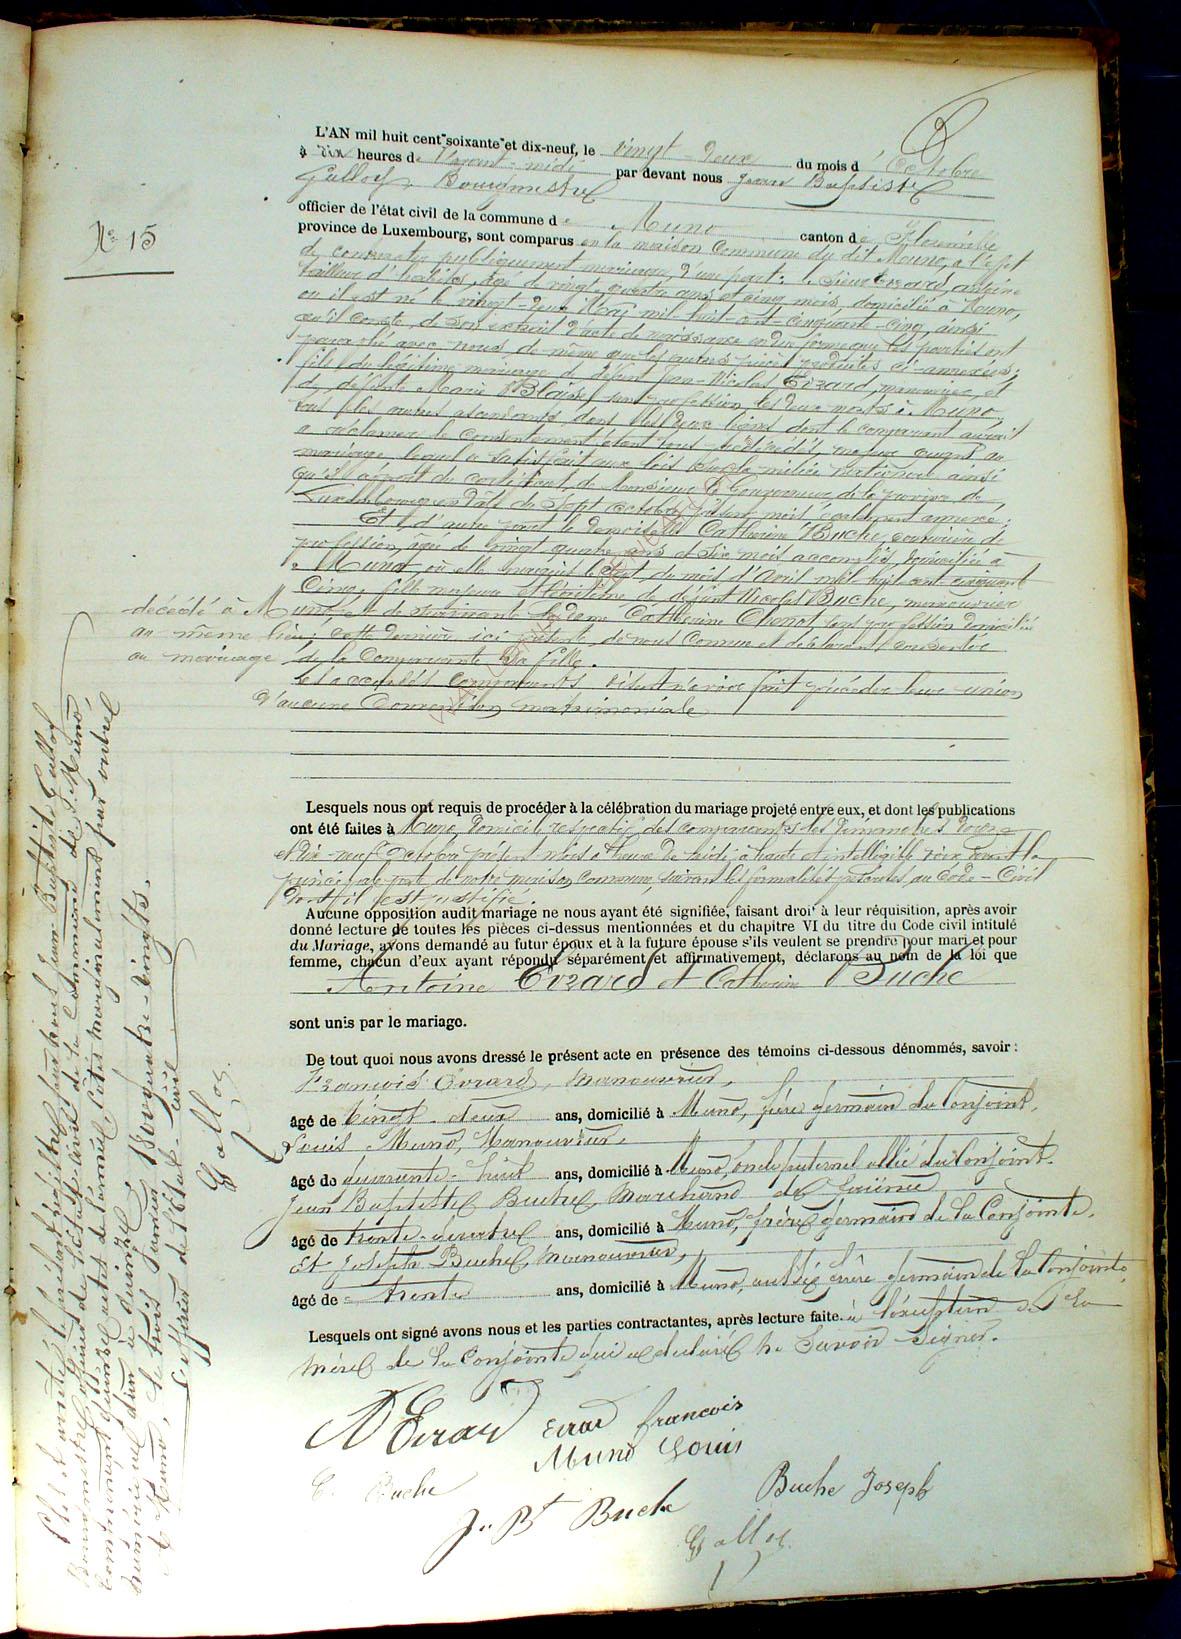 L'AN mil huit cent soixante et dix-neuf, le vingt-deux du mois d'Octobre
à dix heures de l'avant-midi par devant nous Jean Baptiste
Galloy, Bourgmestre
officier de l'état civil de la commune de Muno canton de Florenville
N° 15
province de Luxembourg, sont comparus en la maison commune du dit Muno, à l'effet
de contracter publiquement mariage, d'une part: le Sieur Evrard, Antoine
tailleur d'habits, âgé de vingt quatre ans et cinq mois, domicilié à Muno,
où il est né le vingt-deux Mai mil-huit-cent-cinquante-cinq, ainsi
qu'il conste de son extrait d'acte de naissance en due forme que les parties ont
paraphé avec nous, de même que les autres pièces produites ci-annexées;
fils du légitime mariage de défunt Jean-Nicolas Evrard, manouvrier, et
de défunte Marie Blaise, sans profession, les deux morts à Muno,
tous les autres ascendants dans les deux lignes dont le comparant aurait
à réclamer le consentement étant tous prédécédés, quant au
mariage, lequel a satisfait aux lois sur la milice nationale ainsi
qu'il appert du certificat de Monsieur le Gouverneur de la province de
Luxembourg en date du Sept Octobre présent mois également annexé;
Et d'autre part la demoiselle Catherine Buche, couturière de
profession, âgée de vingt-quatre ans et six mois accomplis, domiciliée à
Muno où elle naquit le sept du mois d'Avril mil huit cent cinquante
Cinq, fille majeure et légitime de défunt Nicolas Buche, manouvrier
décédé à Muno, et de survivante la dame Catherine Chenot sans profession domiciliée
au même lieu; cette dernière ici présente, de nous connue et déclarant consentir
au mariage de la Comparante sa fille.
Les accordés comparants disent n'avoir fait précéder leur union
d'aucune Convention matrimoniale
Lesquels nous ont requis de procéder à la célébration du mariage projeté entre eux, et dont les publications
ont été faites à Muno, domicile respectif des comparants les dimanches douze
et dix-neuf Octobre présent mois à l'heure de midi, à haute et intelligible voix devant la
principale porte de notre maison commune, suivant les formalités prescrites au Code-Civil
dont il est justifié.
Aucune opposition audit mariage ne nous ayant été signifiée, faisant droit à leur réquisition, après avoir
donné lecture de toutes les pièces ci-dessus mentionnées et du chapitre VI du titre du Code civil intitulé
du Mariage, avons demandé au futur époux et à la future épouse s'ils veulent se prendre pour mari et pour
femme, chacun d'eux ayant répondu séparément et affirmativement, déclarons au nom de la loi que
Antoine Evrard et Catherine Buche
sont unis par le mariage.
De tout quoi nous avons dressé le présent acte en présence des témoins ci-dessous dénommés, savoir:
François Evrard, manouvrier,
âgé de vingt-deux ans, domicilié à Muno, frère germain du Conjoint,
Louis Muno, Manouvrier,
âgé de quarante-huit ans, domicilié à Muno, oncle paternel allié du Conjoint.
Jean Baptiste Buche, Marchand de faïence
âgé de trente-quatre ans, domicilié à Muno, frère germain de la Conjointe.
Et Joseph Buche, Manouvrier,
âgé de trente ans, domicilié à Muno, aussi frère germain de la Conjointe
Lesquels ont signé avons nous et les parties contractantes, après lecture faite à l'exception de la
mère de la Conjointe qui a déclaré ne savoir signer.
A Evrard Evrard françois
Muno Louis
C. Buche Buche Joseph
J. Bt Buche
Galloy
Clos et arrêté le présent registre par nous Jean-Baptiste Galloy
Bourgmestre officier de l'état-civil de la Commune de Muno,
Contenant quinze actes de l'année, cotés marginalement par ordre
numérique d'un à quinze.
A Muno, le trois Janvier 18 quatre-vingts.
L'officier de l'état-civil
Galloy